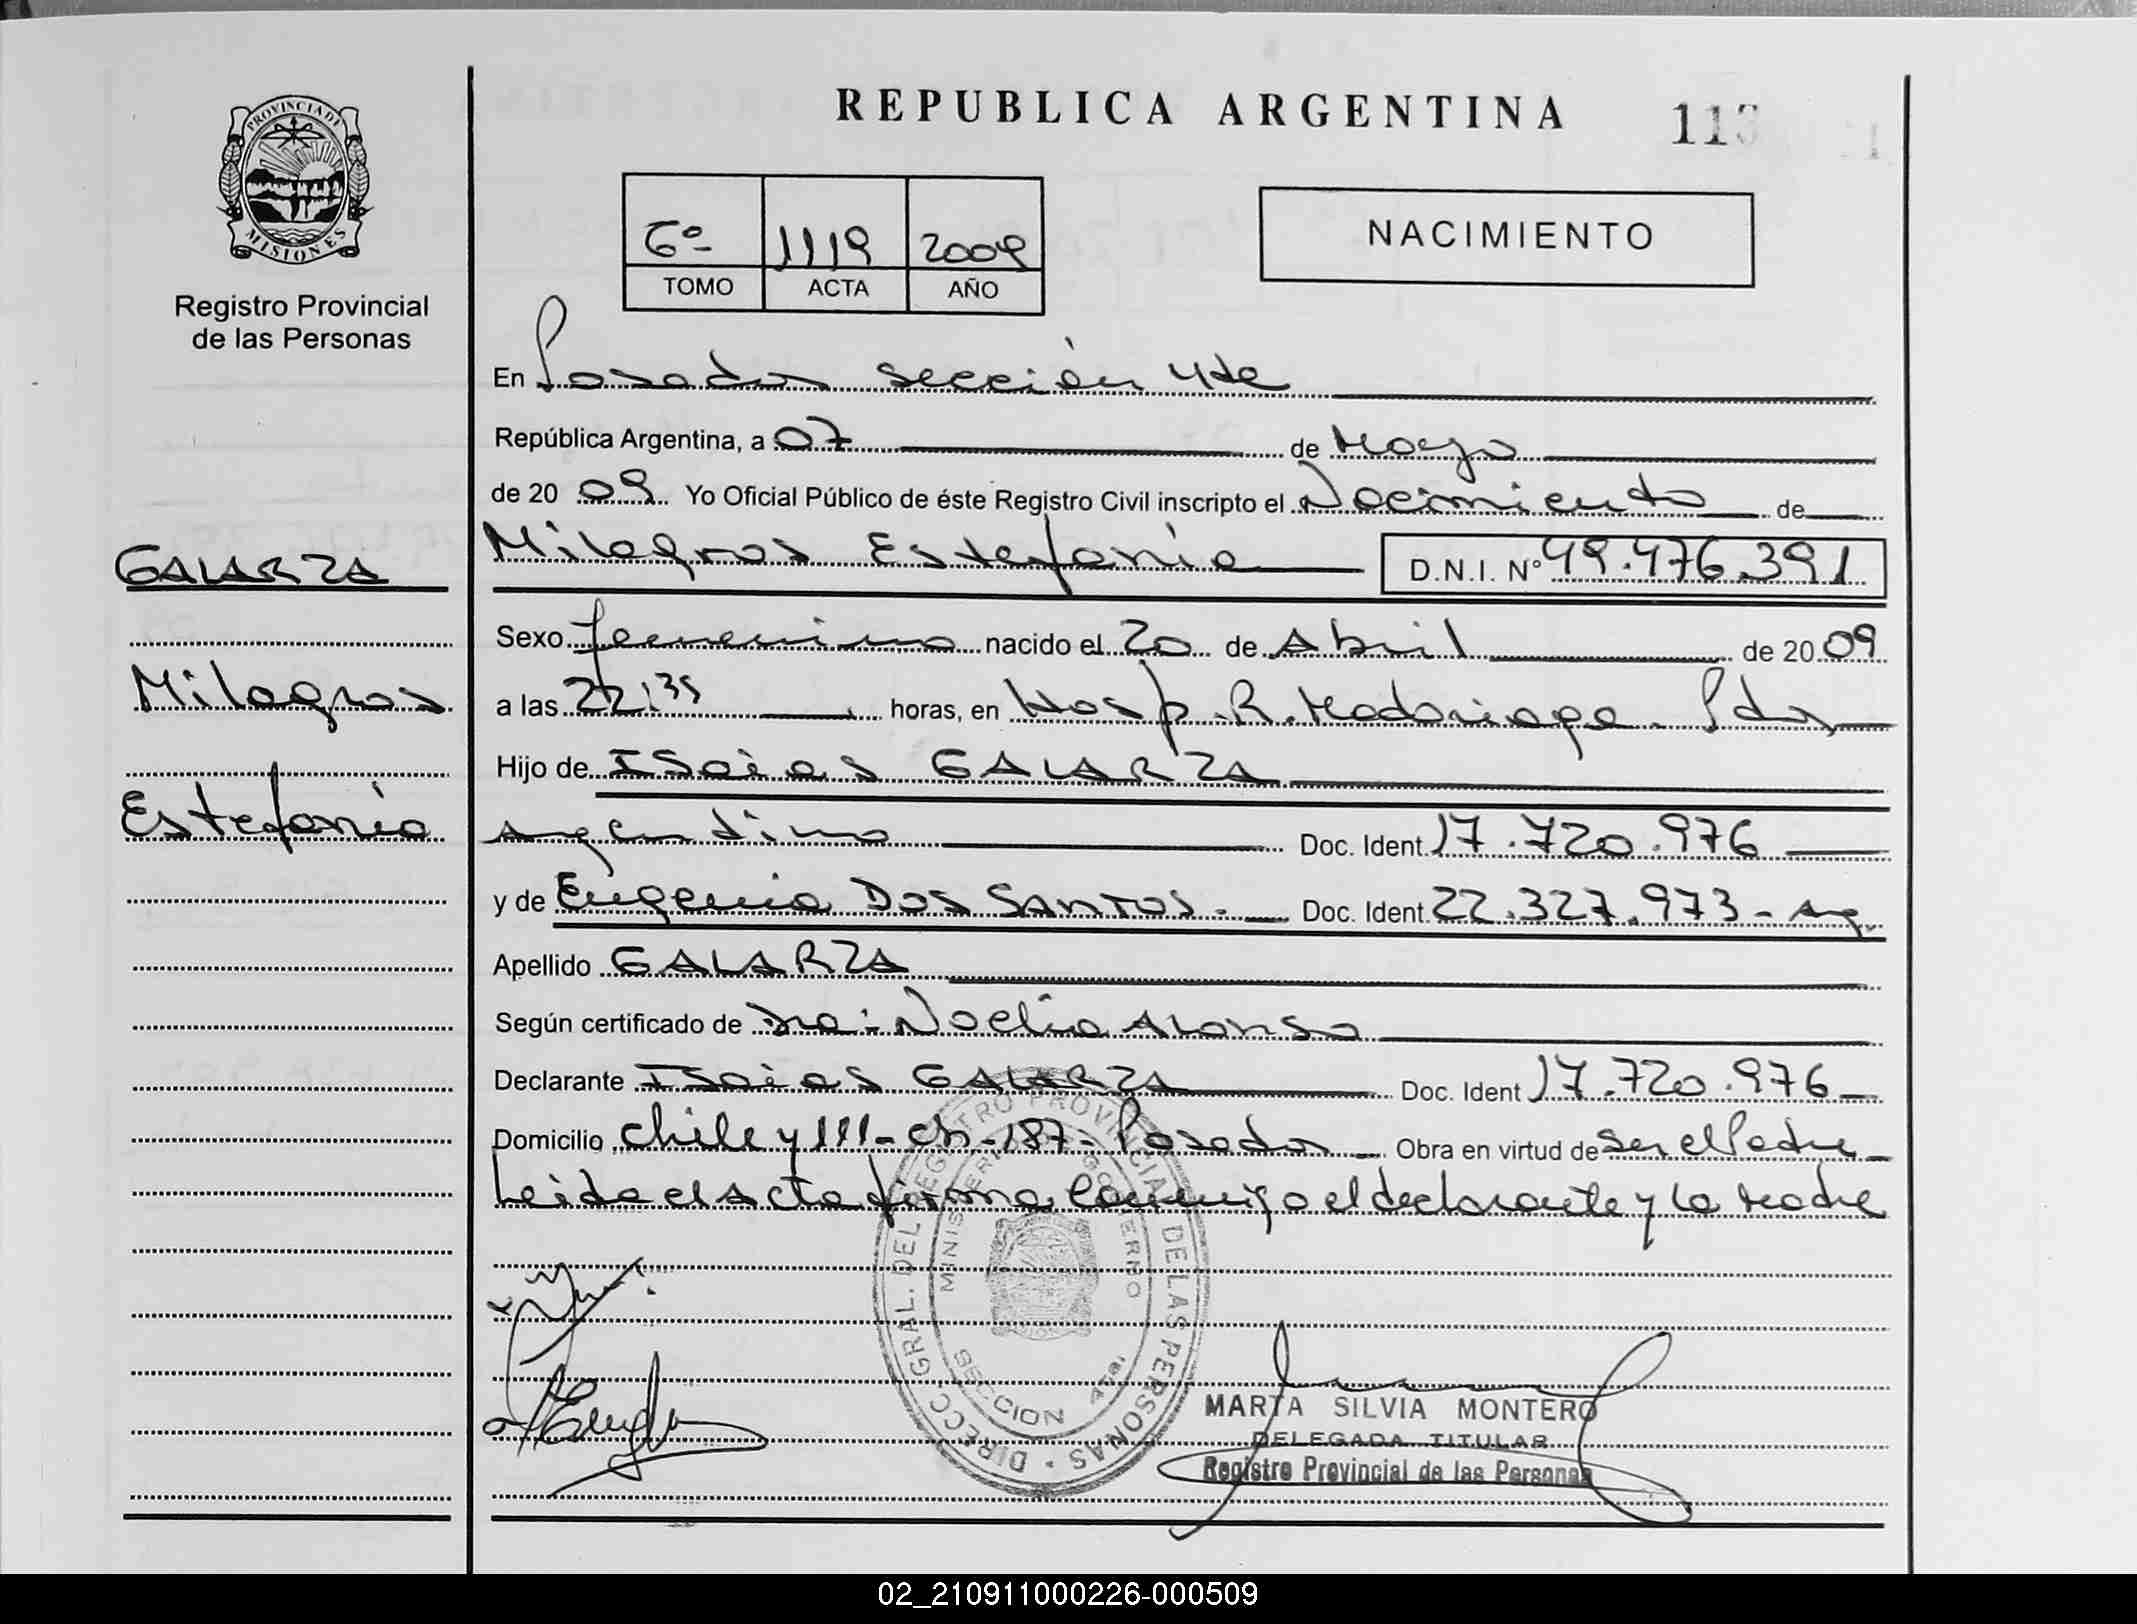 PROVINCIA DE
MISIONES
Registro Provincial
de las Personas
GALARZA
Milagros
Estefanía
REPUBLICA ARGENTINA 113
6º 1119 2009
TOMO ACTA AÑO
NACIMIENTO
En Posadas sección 4ta
República Argentina, a 07 de Mayo
de 20 09 Yo Oficial Público de éste Registro Civil inscripto el Nacimiento de
Milagros Estefanía D.N.I. Nº 49.476.391
Sexo femenino nacido el 20 de Abril de 20 09
a las 22:35 horas, en Hosp. R. Madariaga - Pdas
Hijo de Isaias GALARZA
argentino Doc. Ident. 17.720.976
y de Eugenia DOS SANTOS.- Doc. Ident. 22.327.973 - Arg.
Apellido GALARZA
Según certificado de Dra. Noelia Alonso
Declarante Isaias GALARZA Doc. Ident 17.720.976
Domicilio Chile y 111 - Ch - 187 - Posadas Obra en virtud de ser el Padre
Leida el Acta firma conmigo el declarante y la madre
DIRECC GRAL. DEL REGISTRO PROVINCIAL DE LAS PERSONAS
MINISTERIO GOBIERNO
SECCION 4ta
MARTA SILVIA MONTERO
DELEGADA TITULAR
Registro Provincial de las Personas
02_210911000226-000509